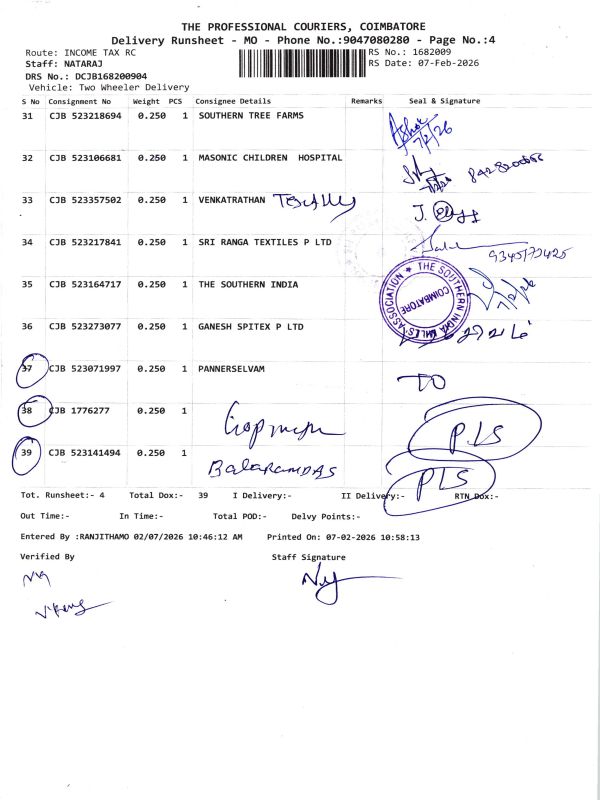 THE PROFESSIONAL COURIERS, COIMBATORE
Delivery Runsheet - MO - Phone No.:9047080280 - Page No.:4
Route: INCOME TAX RC RS No.: 1682009
Staff: NATARAJ RS Date: 07-Feb-2026
DRS No.: DCJB168200904
Vehicle: Two Wheeler Delivery
S No Consignment No Weight PCS Consignee Details Remarks Seal & Signature
31 CJB 523218694 0.250 1 SOUTHERN TREE FARMS
7/2/26
32 CJB 523106681 0.250 1 MASONIC CHILDREN HOSPITAL
33 CJB 523357502 0.250 1 VENKATRATHAN
34 CJB 523217841 0.250 1 SRI RANGA TEXTILES P LTD
35 CJB 523164717 0.250 1 THE SOUTHERN INDIA
THE SOUTHERN INDIA MILLS ASSOCIATION
COIMBATORE
36 CJB 523273077 0.250 1 GANESH SPITEX P LTD
37 CJB 523071997 0.250 1 PANNERSELVAM TO
38 CJB 1776277 0.250 1 PLS
39 CJB 523141494 0.250 1 BALARAMDAS PLS
Tot. Runsheet:- 4 Total Dox:- 39 I Delivery:- II Delivery:- RTN Dox:-
Out Time:- In Time:- Total POD:- Delvy Points:-
Entered By :RANJITHAMO 02/07/2026 10:46:12 AM Printed On: 07-02-2026 10:58:13
Verified By Staff Signature